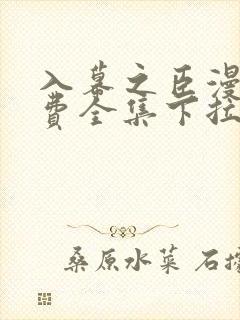 入幕之臣漫
费全集下拉
桑原水菜 石